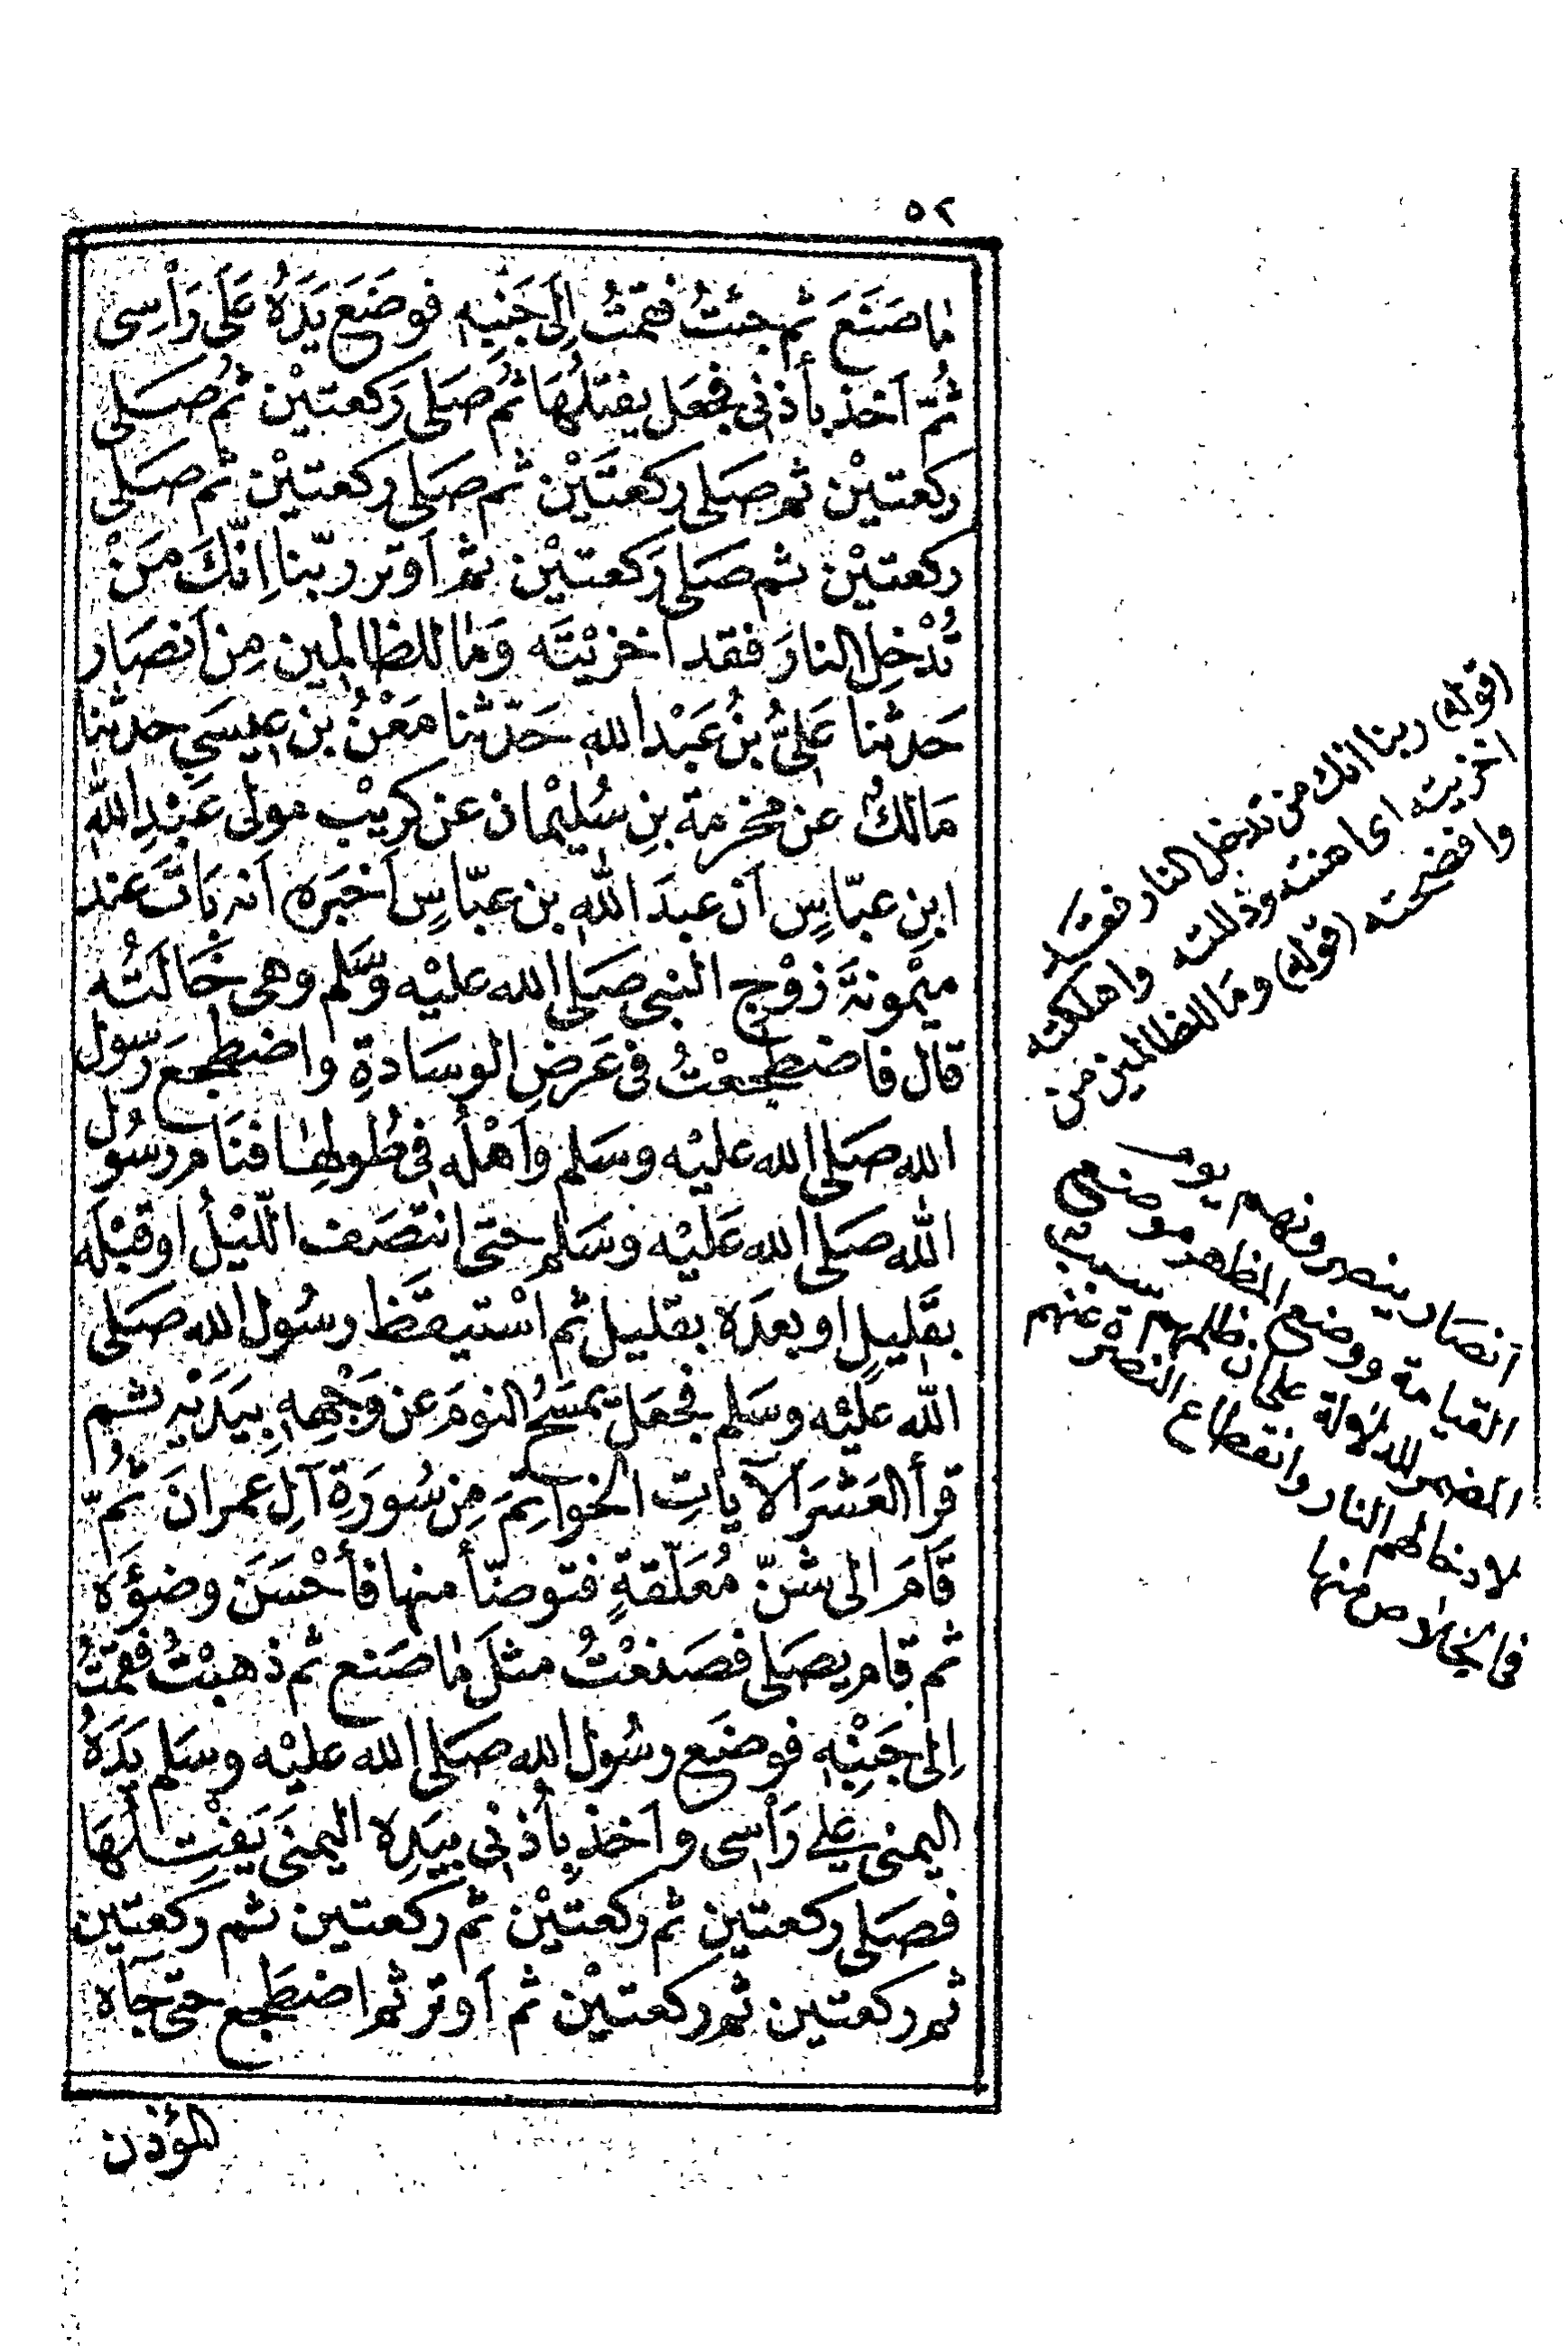 ٥٢
ما صَنَعَ ثم جئتُ فقمتُ اِلَى جَنْبِهِ فوضَعَ يَدَهُ عَلَى رَأْسِى
ثُمَّ اَخذ بأذنى فجعَل يفتلُهَا ثُم صَلى رَكعتيْن ثُم صَلى
ركعتيْن ثم صَلى ركعتَيْن ثم صَلى ركعتيْن ثم صَلى
ركعتيْن ثم صَلى رَكعتيْن ثم اَوتر ربّنا اِنّكَ مَنْ
تُدْخِلِ النارَ فقد اَخزيْتَه وَمَا للظالمِين مِن اَنصَار
حَدثنا عَلىُّ بنُ عَبْد الله حَدّثنا مَعْنُ بن عِيسَى حدثنا
مَالكٌ عن مخرمة بنِ سُليْمان عن كريْب مولى عَبْدِ اللّٰه
ابنِ عبّاسٍ اَن عبدَ اللّٰه بن عبّاسٍ اَخبَره اَنه بَاتَ عند
ميْمونةَ زوْجِ النبى صَلى الله عليْه وسَّلم وهى خَالَتُه
قال فاضطجعْتُ فى عَرضِ الوسَادةِ واضطجعَ رسول
الله صَلى الله عليْه وسَلم وَاَهْلُه فى طُولِهَا فنَام رسُول
اللّٰه صَلى الله عَليْه وسَلم حتى انتصَف اللّيْلُ اَو قبْلَه
بقَليلٍ او بعدَه بقليل ثم اسْتيقَظ رسُول الله صَلى
اللّٰه عليْه وسَلم فجعَل يمسَحُ النومَ عن وَجْهِهِ بِيَدَيْهِ ثم
قرأ العَشرَ الآياتِ الخواتِمَ مِن سُورَةِ آلِ عمرانَ ثُمّ
قَامَ الى شنّ مُعَلّقةٍ فتوضّأ منها فأحْسَنَ وضوءَه
ثم قام يصَلى فصَنعْتُ مثلَ مَا صَنع ثم ذهبْتُ فقمتُ
اِلى جَنبْهِ فوضَع رسُول الله صَلى الله عليْه وسَلم يَدَهُ
اليمنى على رَأسى واَخذ بِأُذنى بيَدِه اليمنَى يَفْتِلُهَا
فصَلى ركعتين ثم ركعتيْن ثم ركعتين ثم ركعتين
ثم ركعتين ثم ركعتيْن ثم اَوتر ثم اضطَجع حتى جَآءه
المؤذن
(قوله) ربنا انك من تدخل النار فقد
اخزيته اى اهنته وذللته واهلكته
وافضحته (قوله) ومَا للظالمين من
اَنصَار ينصرونهم يوم
القيامة ووضع المظهر موضع
المضمر للدلالة على ان ظلمهم تسبب
لادخالهم النار وانقطاع النصرة عنهم
فى الخلاص منها